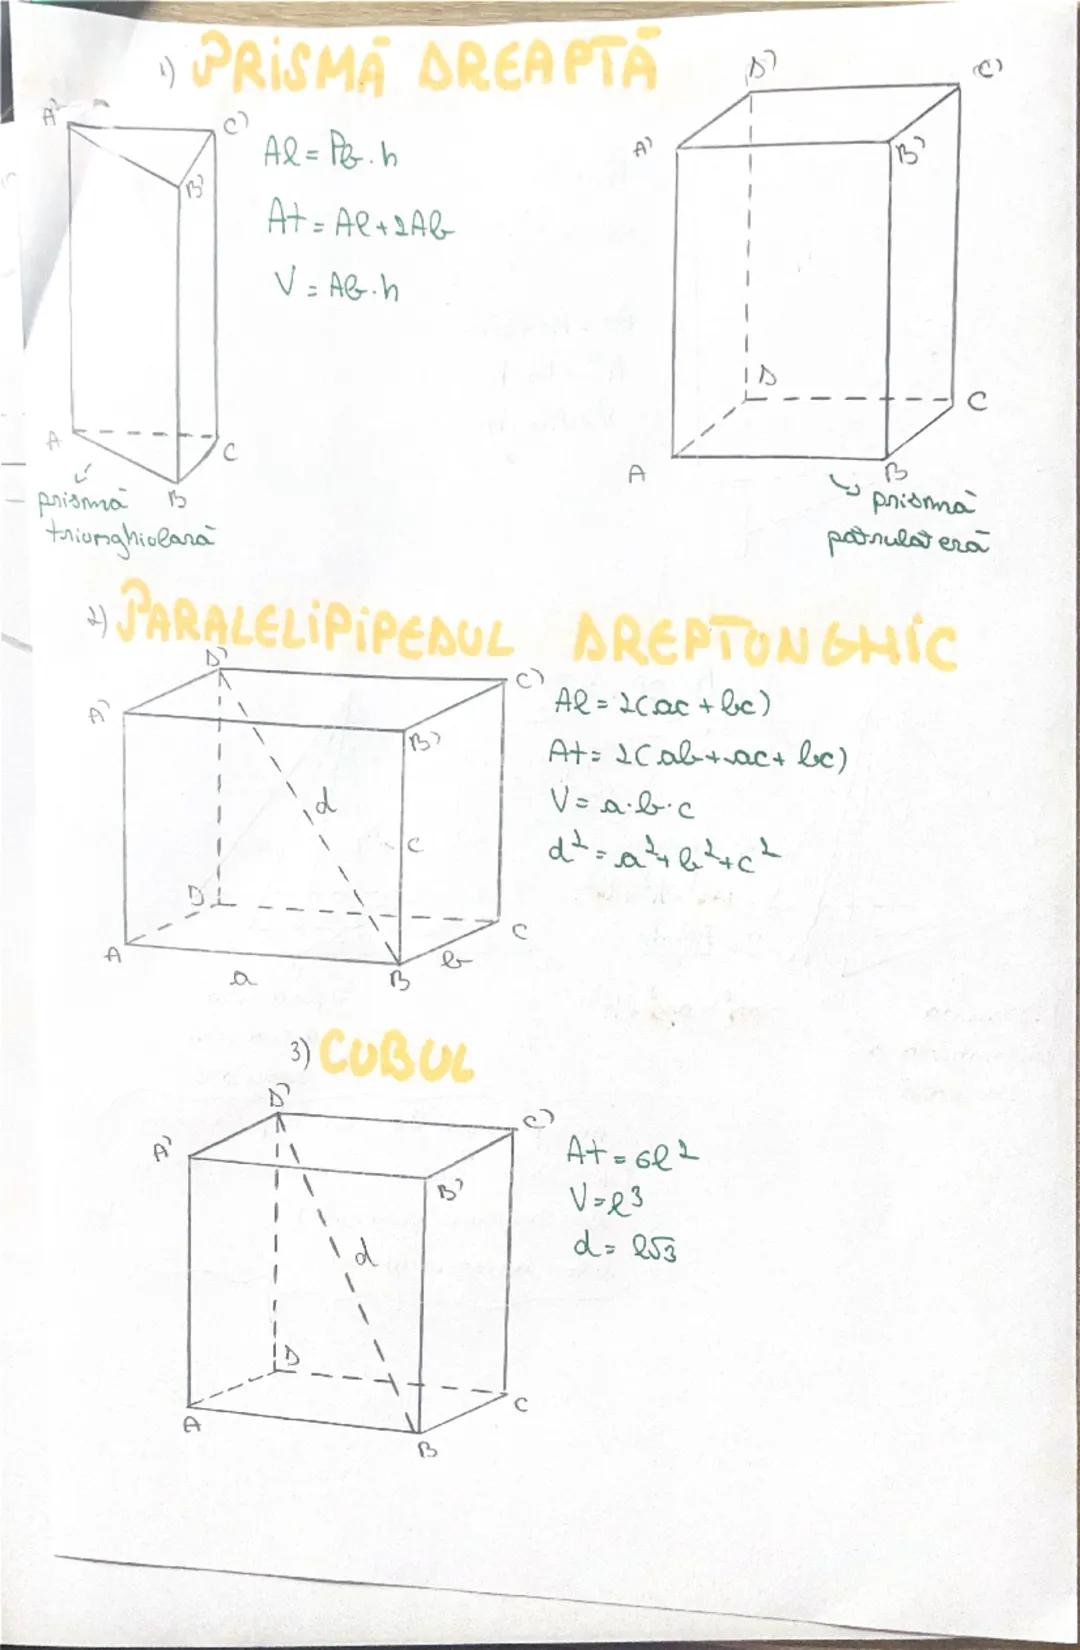 1) PRISMĂ DREAPTĂ
A' C' B'
A C B
Al = Pb · h
At = Al + 2Ab
V = Ab · h
prismă
triunghiulară
D' C' A' B'
D C A B
prismă
patrulateră
2) PARALELIPIPEDUL DREPTUNGHIC
D' C' A' B'
d c
D C A B
a b
Al = 2(ac + bc)
At = 2(ab + ac + bc)
V = a·b·c
d² = a² + b² + c²
3) CUBUL
D' C' A' B'
d
D C A B
At = 6l²
V = l³
d = l√3